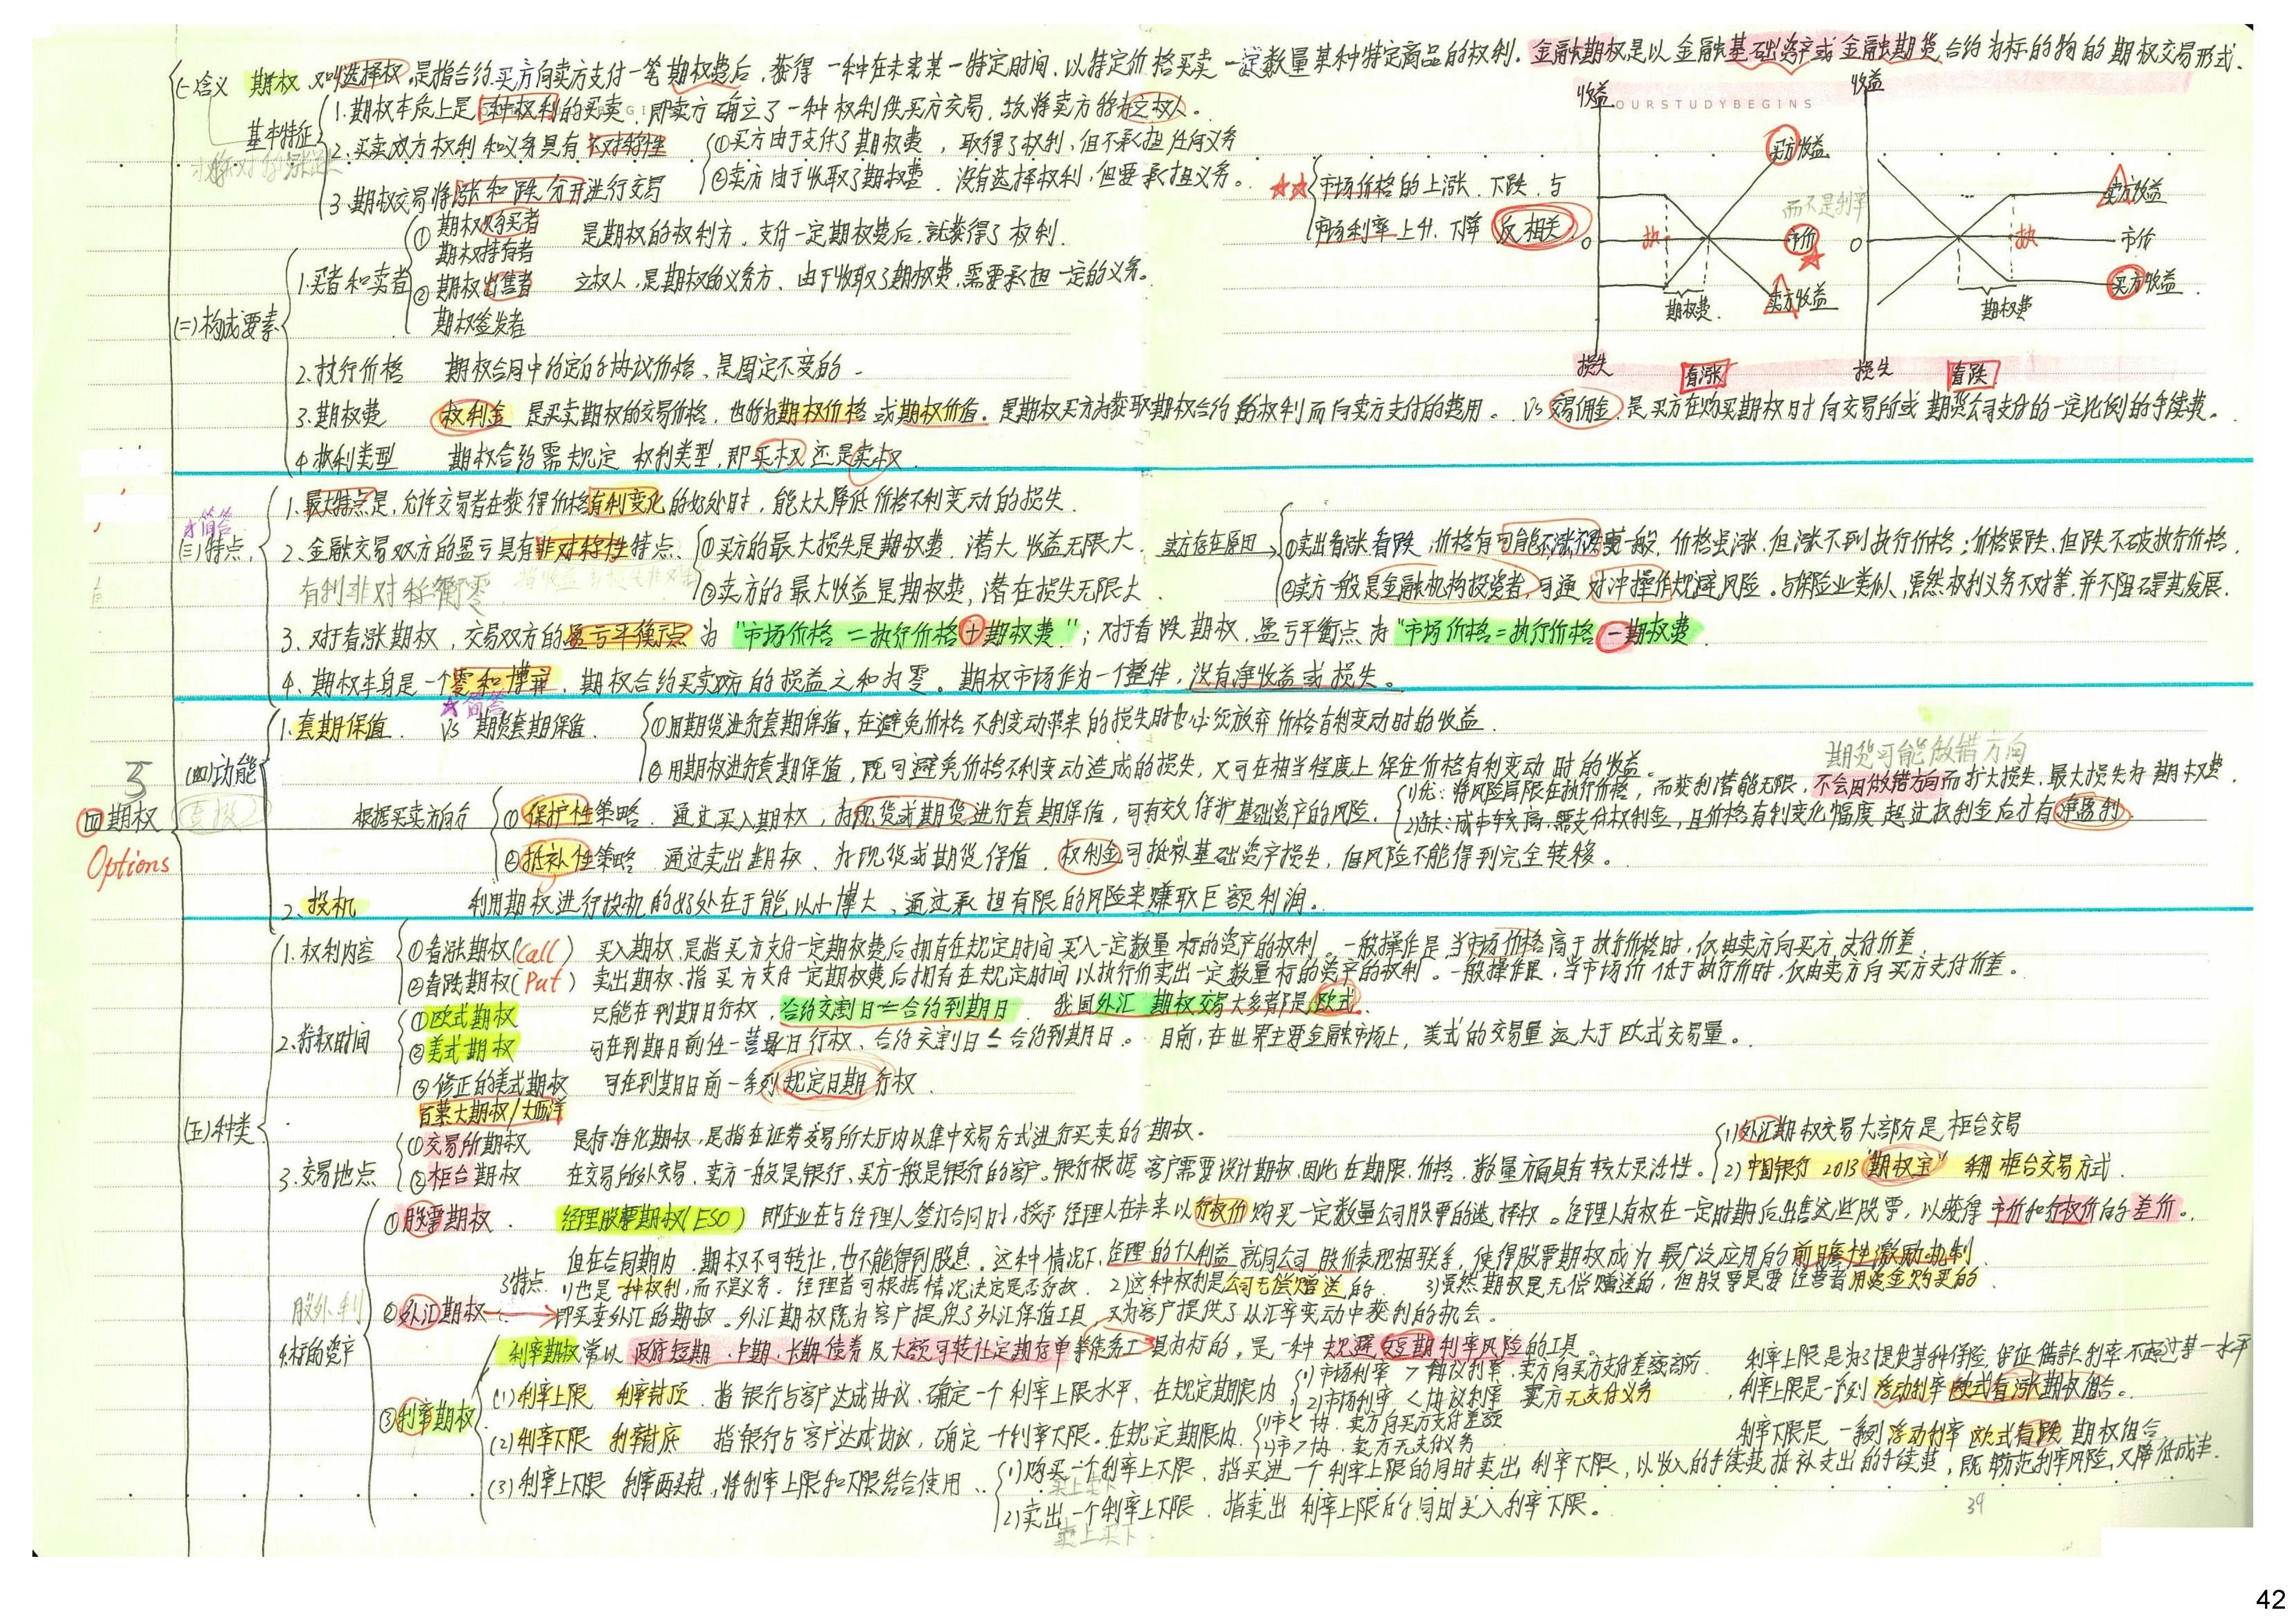 四 期权
Options
(一)含义 期权，又叫选择权，是指合约买方向卖方支付一笔期权费后，获得一种在未来某一特定时间，以特定价格买卖一定数量某种特定商品的权利。金融期权是以金融基础资产或金融期货合约为标的物的期权交易形式.
OURSTUDYBEGINS
基本特征
1.期权本质上是一种权利的买卖，即卖方确立了一种权利供买方交易，故将卖方称为立权人。
2.买卖双方权利和义务具有不对称性
①买方由于支付了期权费，取得了权利，但不承担任何义务
②卖方由于收取了期权费，没有选择权利，但要承担义务。
3.期权交易将涨和跌分开进行交易
市场价格的上涨、下跌，与
市场利率上升、下降 反相关
收益
买方收益
而不是利率
执
0
市价
期权费
卖方收益
损失
看涨
收益
卖方收益
执
0
市价
买方收益
期权费
损失
看跌
(二)构成要素
1.买者和卖者
① 期权购买者
期权持有者
是期权的权利方，支付一定期权费后，就获得了权利.
② 期权出售者
期权签发者
立权人，是期权的义务方，由于收取了期权费，需要承担一定的义务。
2.执行价格 期权合同中约定的协议价格、是固定不变的.
3.期权费 权利金 是买卖期权的交易价格，也称为期权价格或期权价值。是期权买方为获取期权合约的权利而向卖方支付的费用。 VS 交易佣金 是买方在购买期权时向交易所或期货公司支付的一定比例的手续费。
4.权利类型 期权合约需规定权利类型，即买权还是卖权.
简答
(三)特点
1.最大特点是，允许交易者在获得价格有利变化的好处时，能大大降低价格不利变动的损失.
2.金融交易双方的盈亏具有非对称性特点、
①买方的最大损失是期权费，潜大收益无限大.
②卖方的最大收益是期权费，潜在损失无限大.
卖方存在原因
①卖出看涨看跌，价格有可能不涨不跌，更一般，价格虽涨，但涨不到执行价格；价格虽跌，但跌不破执行价格.
②卖方一般是金融机构投资者，可通对冲操作规避风险。与保险业类似，虽然权利义务不对等，并不阻碍其发展.
有利非对称衡零
3.对于看涨期权，交易双方的盈亏平衡点为"市场价格=执行价格+期权费"；对于看跌期权，盈亏平衡点为"市场价格=执行价格-期权费.
4.期权本身是一个零和博弈，期权合约买卖双方的损益之和为零。期权市场作为一个整体，没有净收益或损失。
(四)功能
简答
1.套期保值. VS 期货套期保值.
①用期货进行套期保值，在避免价格不利变动带来的损失时也必须放弃价格有利变动时的收益.
②用期权进行套期保值，既可避免价格不利变动造成的损失，又可在相当程度上保住价格有利变动时的收益。
期货可能做错方向
根据买卖方向分
①保护性策略 通过买入期权，为现货或期货进行套期保值，可有效保护基础资产的风险.
1)优：将风险局限在执行价格，而获利潜能无限，不会因做错方向而扩大损失，最大损失为期权费.
2)缺：成本较高，需支付权利金，且价格有利变化幅度超过权利金后才有净盈利.
②抵补性策略 通过卖出期权、为现货或期货保值. 权利金可抵补基础资产损失，但风险不能得到完全转移。
2.投机 利用期权进行投机的好处在于能以小博大，通过承担有限的风险来赚取巨额利润。
(五)种类
1.权利内容
①看涨期权(Call) 买入期权，是指买方支付一定期权费后拥有在规定时间买入一定数量标的资产的权利。一般操作是当市场价格高于执行价格时，仅由卖方向买方支付价差
②看跌期权(Put) 卖出期权，指买方支付一定期权费后拥有在规定时间以执行价卖出一定数量标的资产的权利。一般操作是，当市场价低于执行价时，仅由卖方向买方支付价差。
2.行权时间
①欧式期权 只能在到期日行权，合约交割日=合约到期日. 我国外汇期权交易大多都是欧式.
②美式期权 可在到期日前任一营业日行权、合约交割日≤合约到期日。 目前，在世界主要金融市场上，美式的交易量远大于欧式交易量。
③修正的美式期权 可在到期日前一系列规定日期行权.
百慕大期权/大西洋
3.交易地点
①交易所期权 是标准化期权，是指在证券交易所大厅内以集中交易方式进行买卖的期权.
②柜台期权 在交易所外交易，卖方一般是银行、买方一般是银行的客户。银行根据客户需要设计期权，因此在期限、价格、数量方面具有较大灵活性。
1)外汇期权交易大部分是柜台交易
2)中国银行2013"期权宝" 利用柜台交易方式.
4.标的资产
股外利
①股票期权. 经理股票期权(ESO) 即企业在与经理人签订合同时，授予经理人在未来以行权价购买一定数量公司股票的选择权。经理人有权在一定时期后出售这些股票，以获得市价和行权价的差价。
但在合同期内，期权不可转让，也不能得到股息。这种情况下，经理的个人利益就同公司股价表现相联系，使得股票期权成为最广泛应用的前瞻性激励机制.
3特点 1)也是一种权利，而不是义务. 经理者可根据情况决定是否行权. 2)这种权利是公司无偿赠送的. 3)虽然期权是无偿赠送的，但股票是要经营者用资金购买的.
②外汇期权 即买卖外汇的期权。外汇期权既为客户提供了外汇保值工具，又为客户提供了从汇率变动中获利的机会.
③利率期权
利率期权常以政府短期、中期、长期债券及大额可转让定期存单等债务工具为标的，是一种规避短期利率风险的工具。
(1)利率上限 利率封顶. 指银行与客户达成协议，确定一个利率上限水平，在规定期限内
1)市场利率>协议利率，卖方向买方支付差额部分.
2)市场利率<协议利率 卖方无支付义务
利率上限是为了提供某种保险，保证借款利率不超过某一水平
利率上限是一系列浮动利率欧式看涨期权组合。
(2)利率下限 利率封底 指银行与客户达成协议，确定一个利率下限. 在规定期限内.
1)市<协. 卖方向买方支付差额
2)市>协. 卖方无支付义务
利率下限是一系列浮动利率欧式看跌期权组合
(3)利率上下限 利率两头封，将利率上限和下限结合使用
1)购买一个利率上下限，指买进一个利率上限的同时卖出利率下限，以收入的手续费抵补支出的手续费，既防范利率风险，又降低成本.
买上卖下
2)卖出一个利率上下限. 指卖出利率上限的同时买入利率下限。
卖上买下
39
42